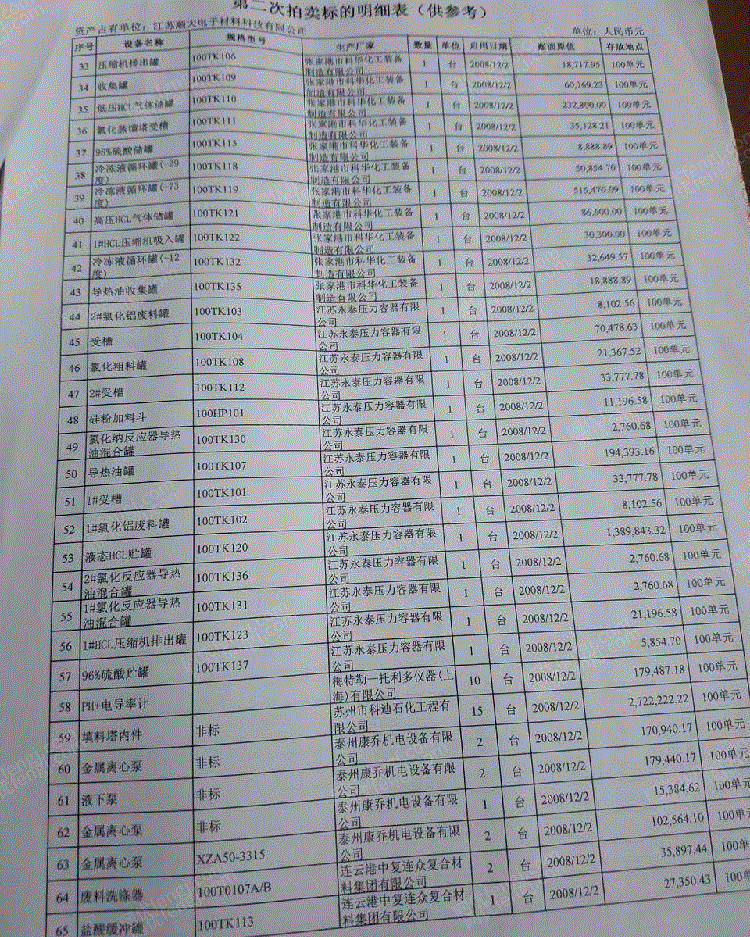 第二次拍卖标的明细表（供参考）
资产占有单位：江苏顺大电子材料科技有限公司 单位：人民币元
序号 设备名称 规格型号 生产厂家 数量 单位 启用日期 账面原值 存放地点
33 压缩机排出罐 100TK106 张家港市科华化工装备制造有限公司 1 台 2008/12/2 18,717.95 100单元
34 收集罐 100TK109 张家港市科华化工装备制造有限公司 1 台 2008/12/2 60,169.23 100单元
35 低压HCL气体储罐 100TK110 张家港市科华化工装备制造有限公司 1 台 2008/12/2 232,800.00 100单元
36 氯化蒸馏塔受槽 100TK111 张家港市科华化工装备制造有限公司 1 台 2008/12/2 35,128.21 100单元
37 96%硫酸储罐 100TK115 张家港市科华化工装备制造有限公司 1 台 2008/12/2 8,888.89 100单元
38 冷冻液循环罐（-20度） 100TK118 张家港市科华化工装备制造有限公司 1 台 2008/12/2 50,854.70 100单元
39 冷冻液循环罐（-73度） 100TK119 张家港市科华化工装备制造有限公司 1 台 2008/12/2 100单元
40 高压HCL气体储罐 100TK121 张家港市科华化工装备制造有限公司 1 台 2008/12/2 86,000.00 100单元
41 1#HCL压缩机吸入罐 100TK122 张家港市科华化工装备制造有限公司 1 台 2008/12/2 30,300.00 100单元
42 冷冻液循环罐（-12度） 100TK132 张家港市科华化工装备制造有限公司 1 台 2008/12/2 32,649.57 100单元
43 导热油收集罐 100TK135 张家港市科华化工装备制造有限公司 1 台 2008/12/2 18,888.89 100单元
44 2#氯化铝废料罐 100TK103 江苏永泰压力容器有限公司 1 台 2008/12/2 8,102.56 100单元
45 受槽 100TK104 江苏永泰压力容器有限公司 1 台 2008/12/2 70,478.63 100单元
46 氯化粗料罐 100TK108 江苏永泰压力容器有限公司 1 台 2008/12/2 21,367.52 100单元
47 2#受槽 100TK112 江苏永泰压力容器有限公司 1 台 2008/12/2 33,777.78 100单元
48 硅粉加料斗 100HP101 江苏永泰压力容器有限公司 1 台 2008/12/2 11,196.58 100单元
49 氯化钠反应器导热油混合罐 100TK130 江苏永泰压力容器有限公司 1 台 2008/12/2 2,760.68 100单元
50 导热油罐 100TK107 江苏永泰压力容器有限公司 1 台 2008/12/2 194,393.16 100单元
51 1#受槽 100TK101 江苏永泰压力容器有限公司 1 台 2008/12/2 33,777.78 100单元
52 1#氯化铝废料罐 100TK102 江苏永泰压力容器有限公司 1 台 2008/12/2 8,102.56 100单元
53 液态HCL贮罐 100TK120 江苏永泰压力容器有限公司 1 台 2008/12/2 1,389,843.32 100单元
54 2#氯化反应器导热油混合罐 100TK136 江苏永泰压力容器有限公司 1 台 2008/12/2 2,760.68 100单元
55 1#氯化反应器导热油混合罐 100TK131 江苏永泰压力容器有限公司 1 台 2008/12/2 2,760.68 100单元
56 1#HCL压缩机排出罐 100TK123 江苏永泰压力容器有限公司 1 台 2008/12/2 21,196.58 100单元
57 96%硫酸贮罐 100TK137 江苏永泰压力容器有限公司 1 台 2008/12/2 5,854.70 100单元
58 PH+电导率计 梅特勒—托利多仪器(上海)有限公司 10 台 2008/12/2 179,487.18 100单元
59 填料塔内件 非标 苏州市科迪石化工程有限公司 15 台 2008/12/2 2,722,222.22 100单元
60 金属离心泵 非标 泰州康乔机电设备有限公司 2 台 2008/12/2 170,940.17 100单元
61 液下泵 非标 泰州康乔机电设备有限公司 2 台 2008/12/2 179,440.17 100单元
62 金属离心泵 非标 泰州康乔机电设备有限公司 1 台 2008/12/2 15,384.62 100单元
63 金属离心泵 XZA50-3315 泰州康乔机电设备有限公司 2 台 2008/12/2 102,564.10 100单元
64 废料洗涤器 100T0107A/B 连云港中复连众复合材料集团有限公司 2 台 2008/12/2 35,897.44 100单元
65 盐酸缓冲罐 100TK113 连云港中复连众复合材料集团有限公司 1 台 2008/12/2 27,350.43 100单元